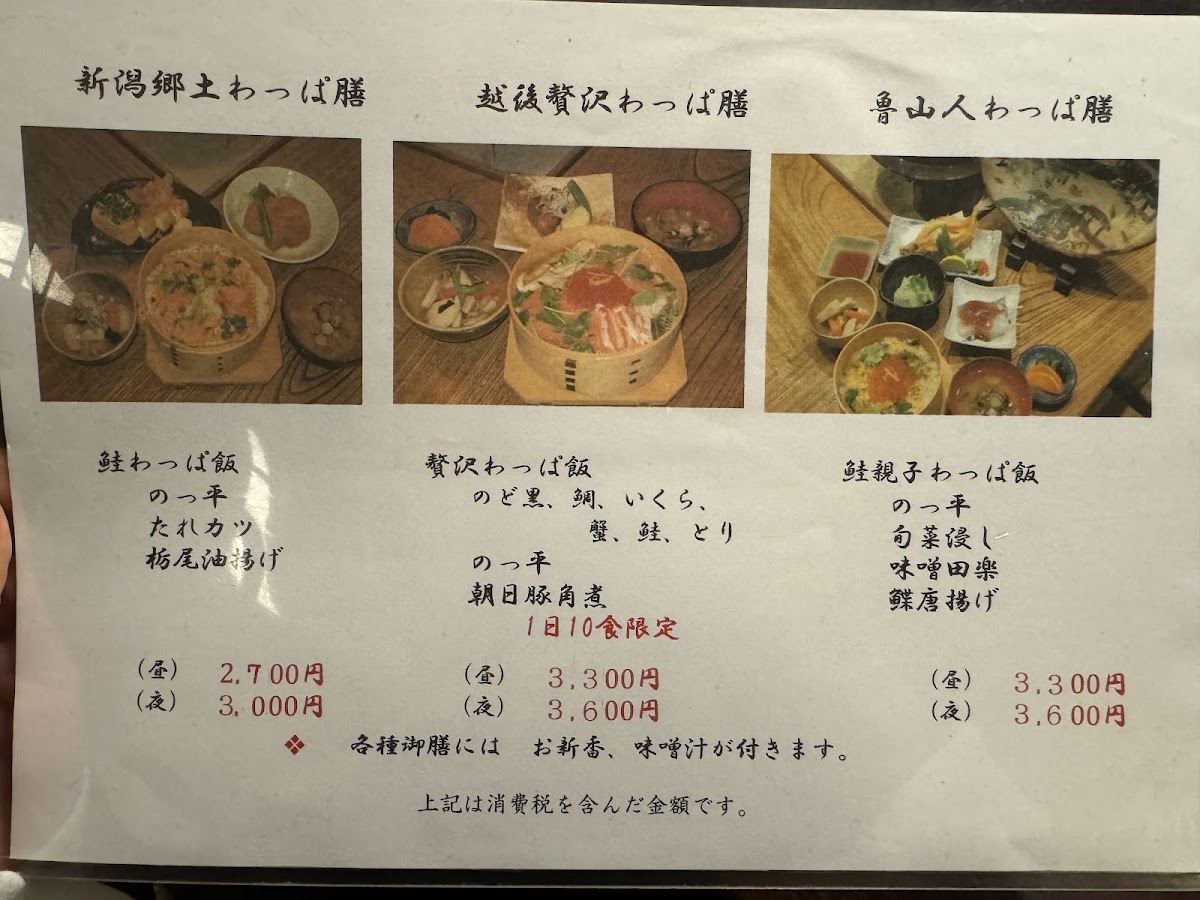 新潟郷土わっぱ膳
鮭わっぱ飯
のっ平
たれカツ
栃尾油揚げ
（昼） 2,700円
（夜） 3,000円
越後贅沢わっぱ膳
贅沢わっぱ飯
のど黒、鯛、いくら、
蟹、鮭、とり
のっ平
朝日豚角煮
1日10食限定
（昼） 3,300円
（夜） 3,600円
魯山人わっぱ膳
鮭親子わっぱ飯
のっ平
旬菜浸し
味噌田楽
鰈唐揚げ
（昼） 3,300円
（夜） 3,600円
❖ 各種御膳には お新香、味噌汁が付きます。
上記は消費税を含んだ金額です。